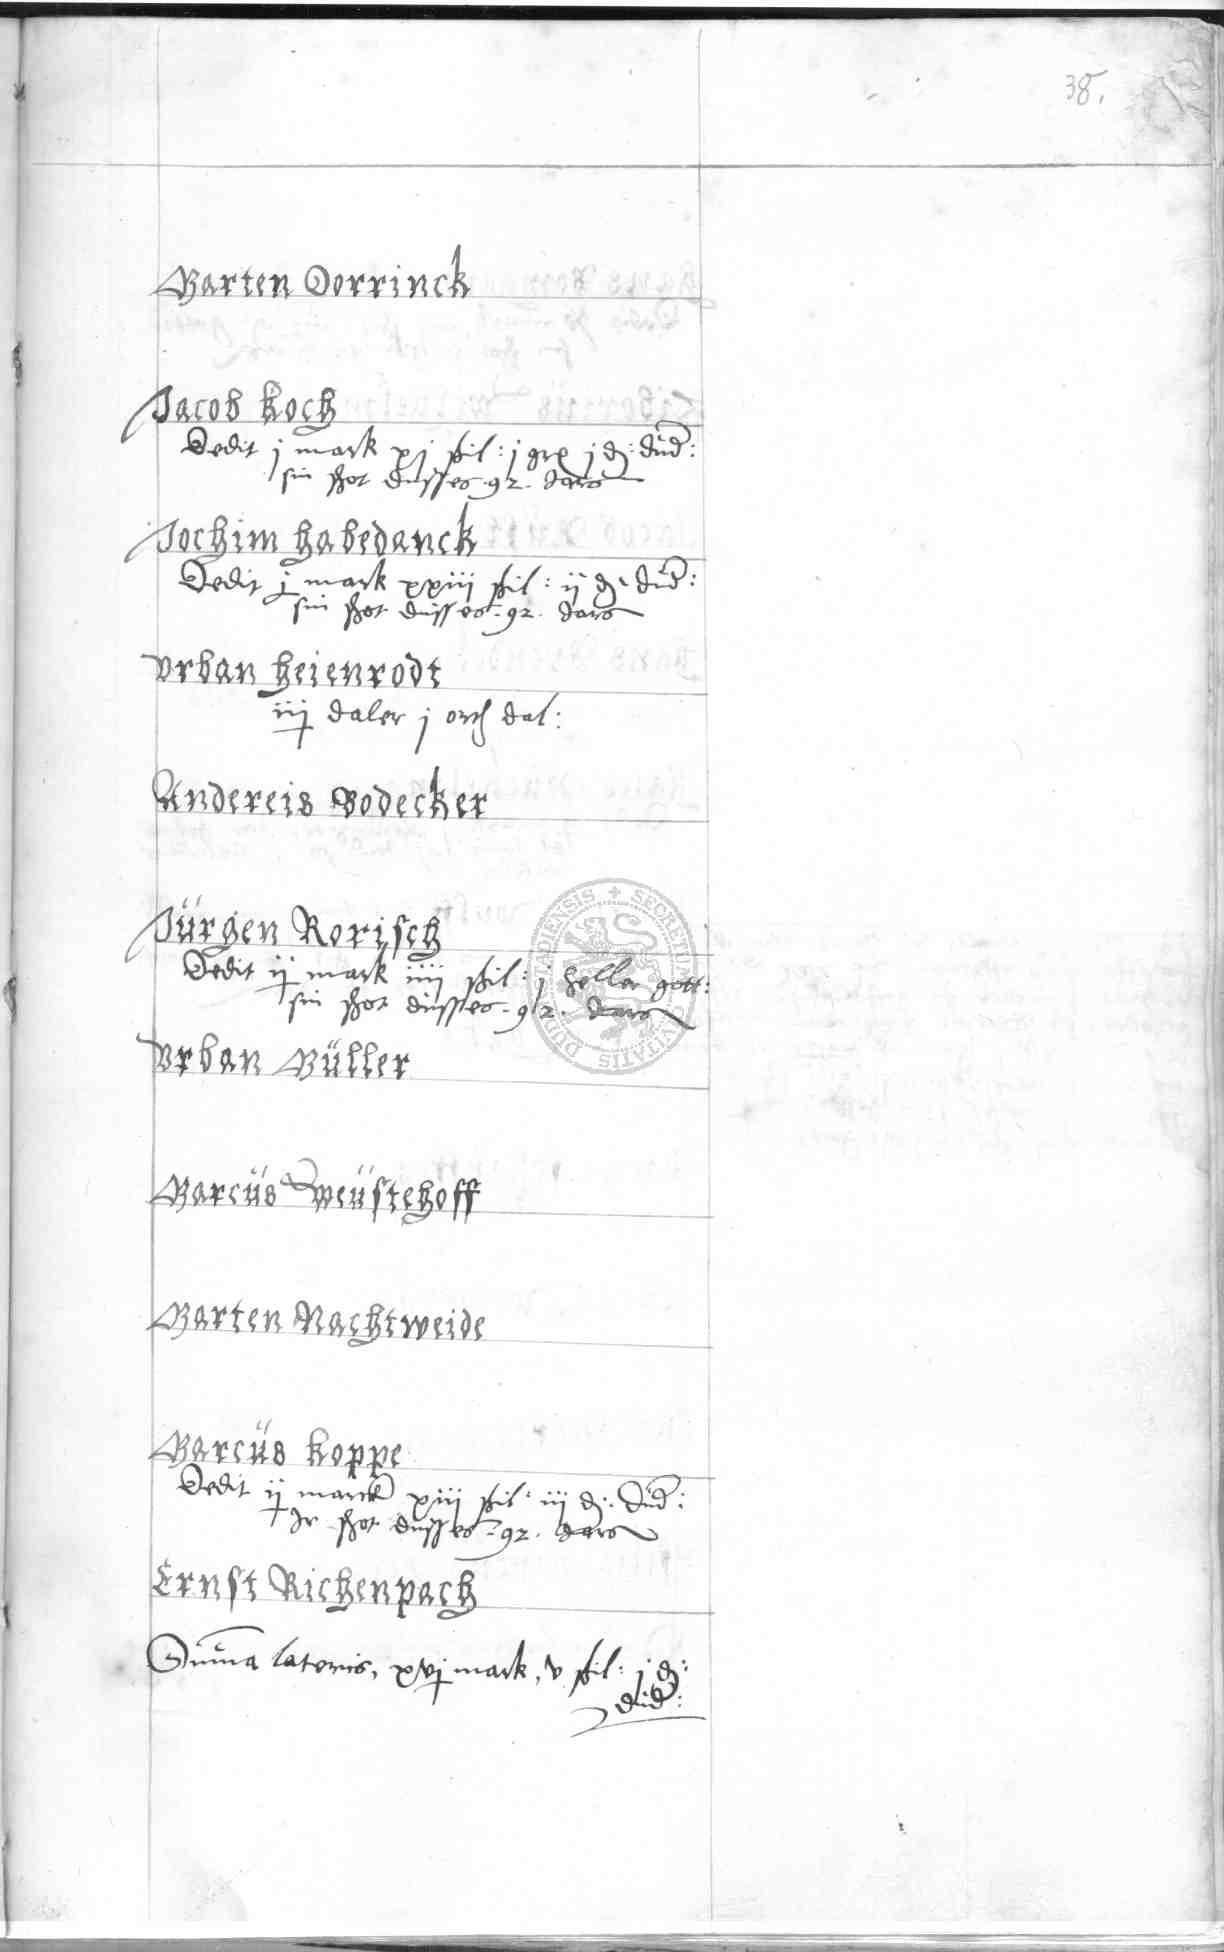 38.
Marten Dorrinck
Jacob Koch
Dedit j mark xj ßil: j grx j ₰: dud:
sin shot dusses 92. Jars
Jochim Habedanck
Dedit j mark xxiii ßil: ij ₰: dud:
sin shot dusses 92. Jars
Vrban Heienrodt
iij daler j orth dal:
Andereis Bodecker
Jürgen Rorisch
Dedit ij mark iiii ßil: j heller gott:
sin shot dusses 92. Jars
Vrban Müller
Marcüs Weüstehoff
Marten Nachtweide
Marcüs Koppe
Dedit ij marck xiii ßil: iii ₰: dud:
Ir shot dusses 92. Jars
Ernst Richenpach
Suma lateris, xvj mark, v ßil: j ₰:
dud:
SECRETUM CIVITATIS DUDERSTADIENSIS